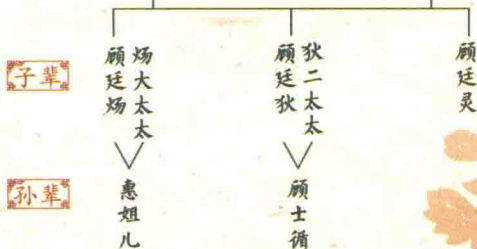 子辈
顾廷炀
炀大太太
顾廷狄
狄二太太
顾廷灵
孙辈
惠姐儿
顾士循